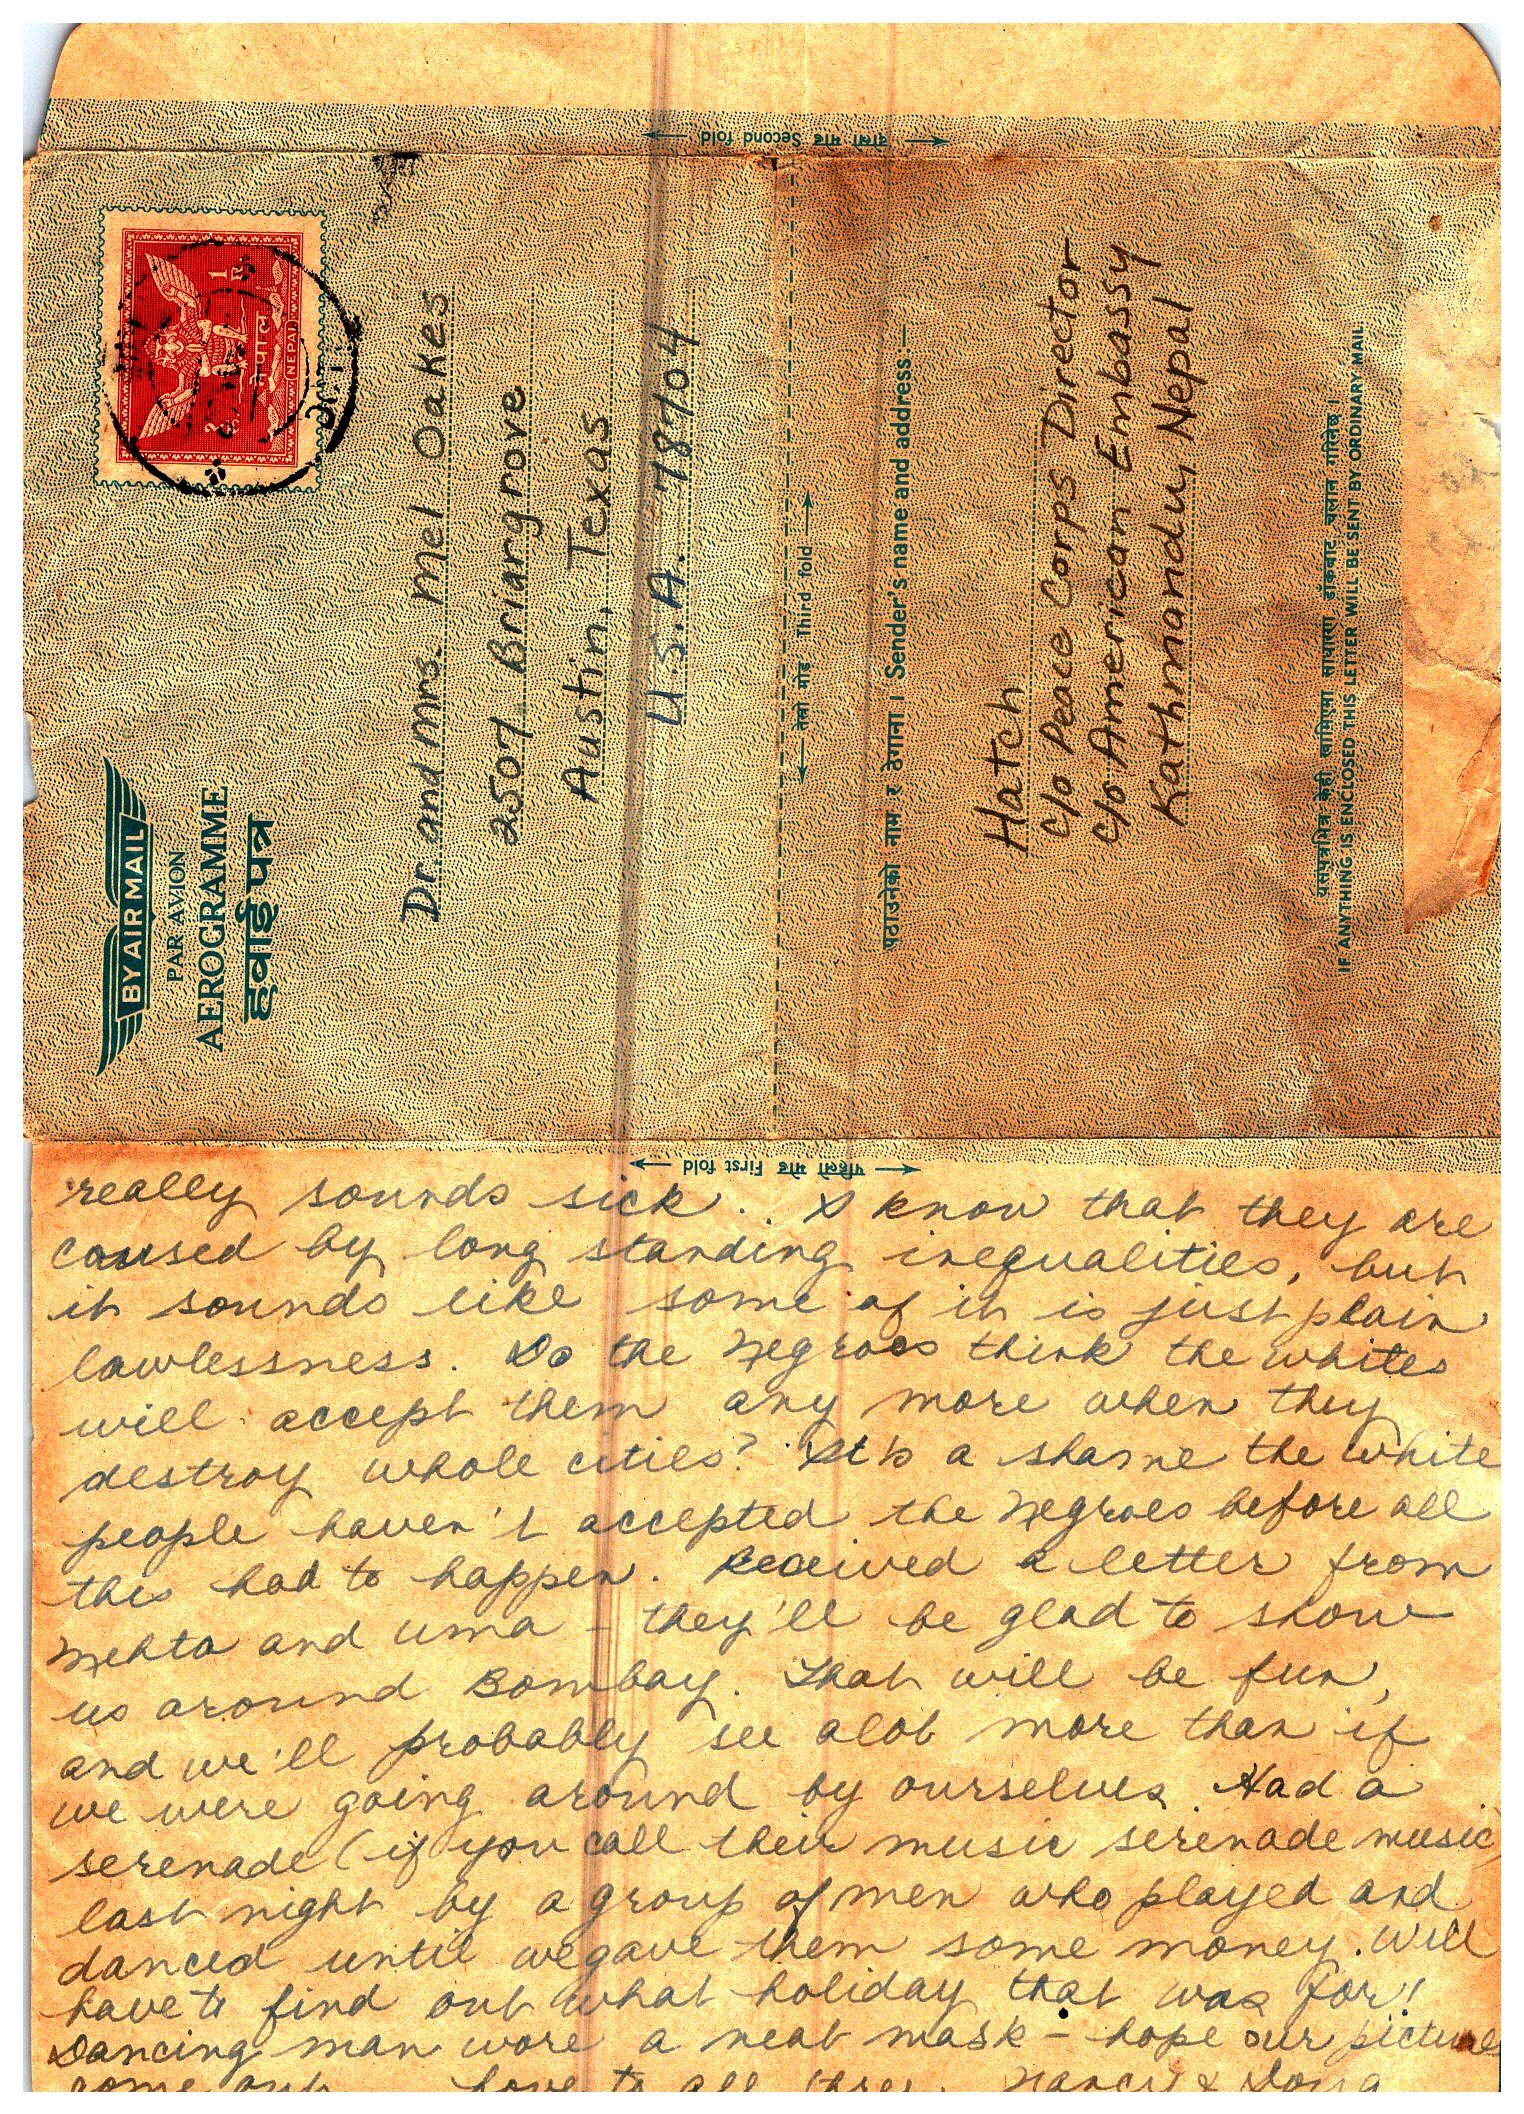 दोस्रो मोड Second fold
नेपाल
NEPAL
1
R.
BY AIR MAIL
PAR AVION
AEROGRAMME
हवाई पत्र
Dr. and Mrs. Mel Oakes
2507 Briargrove
Austin, Texas
U.S.A. 78704
तेस्रो मोड Third fold
पठाउनेको नाम र ठेगाना । Sender's name and address
Hatch
c/o Peace Corps Director
c/o American Embassy
Kathmandu, Nepal
यसपत्रभित्र केही लागिएमा साधारण डाकबाट चलान गरिनेछ ।
IF ANYTHING IS ENCLOSED THIS LETTER WILL BE SENT BY ORDINARY MAIL
पहिलो मोड First fold
really sounds sick. I know that they are
caused by long standing inequalities, but
it sounds like some of it is just plain
lawlessness. Do the Negroes think the whites
will accept them any more when they
destroy whole cities? It's a shame the white
people haven't accepted the Negroes before all
this had to happen. Received a letter from
Mehta and Uma - they'll be glad to show
us around Bombay. That will be fun,
and we'll probably see alot more than if
we were going around by ourselves. Had a
serenade (if you call their music serenade music)
last night by a group of men who played and
danced until we gave them some money. Will
have to find out what holiday that was for!
Dancing man wore a neat mask - hope our pictures
come out. Love to all three, Nancy & Doug